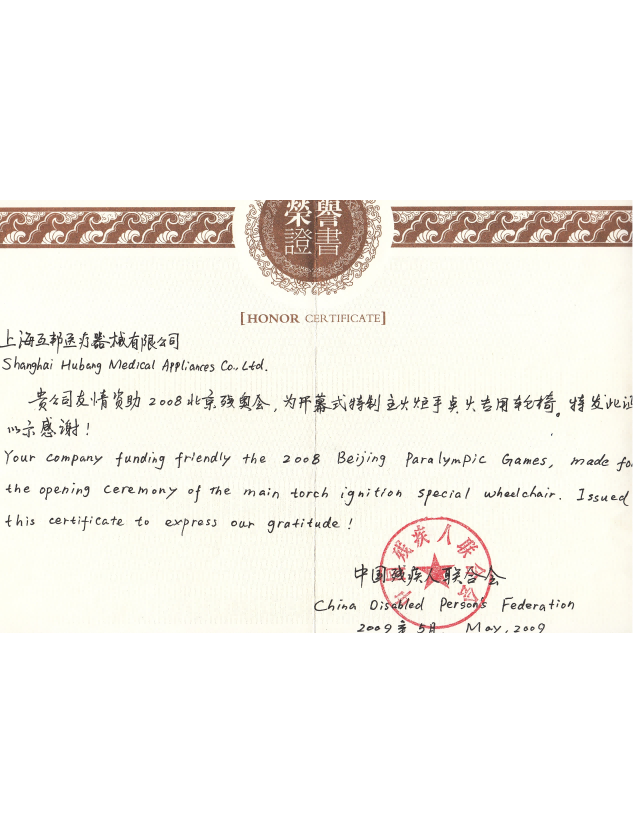 榮譽
證書
[HONOR CERTIFICATE]
上海互邦医疗器械有限公司
Shanghai Hubang Medical Appliances Co., Ltd.
贵公司友情资助2008北京残奥会,为开幕式特制主火炬手点火专用轮椅。特发此证
以示感谢!
Your company funding friendly the 2008 Beijing Paralympic Games, made for
the opening ceremony of the main torch ignition special wheelchair. Issued
this certificate to express our gratitude!
中国残疾人联合会
中国残疾人联合会
China Disabled Person's Federation
2009年5月 May, 2009